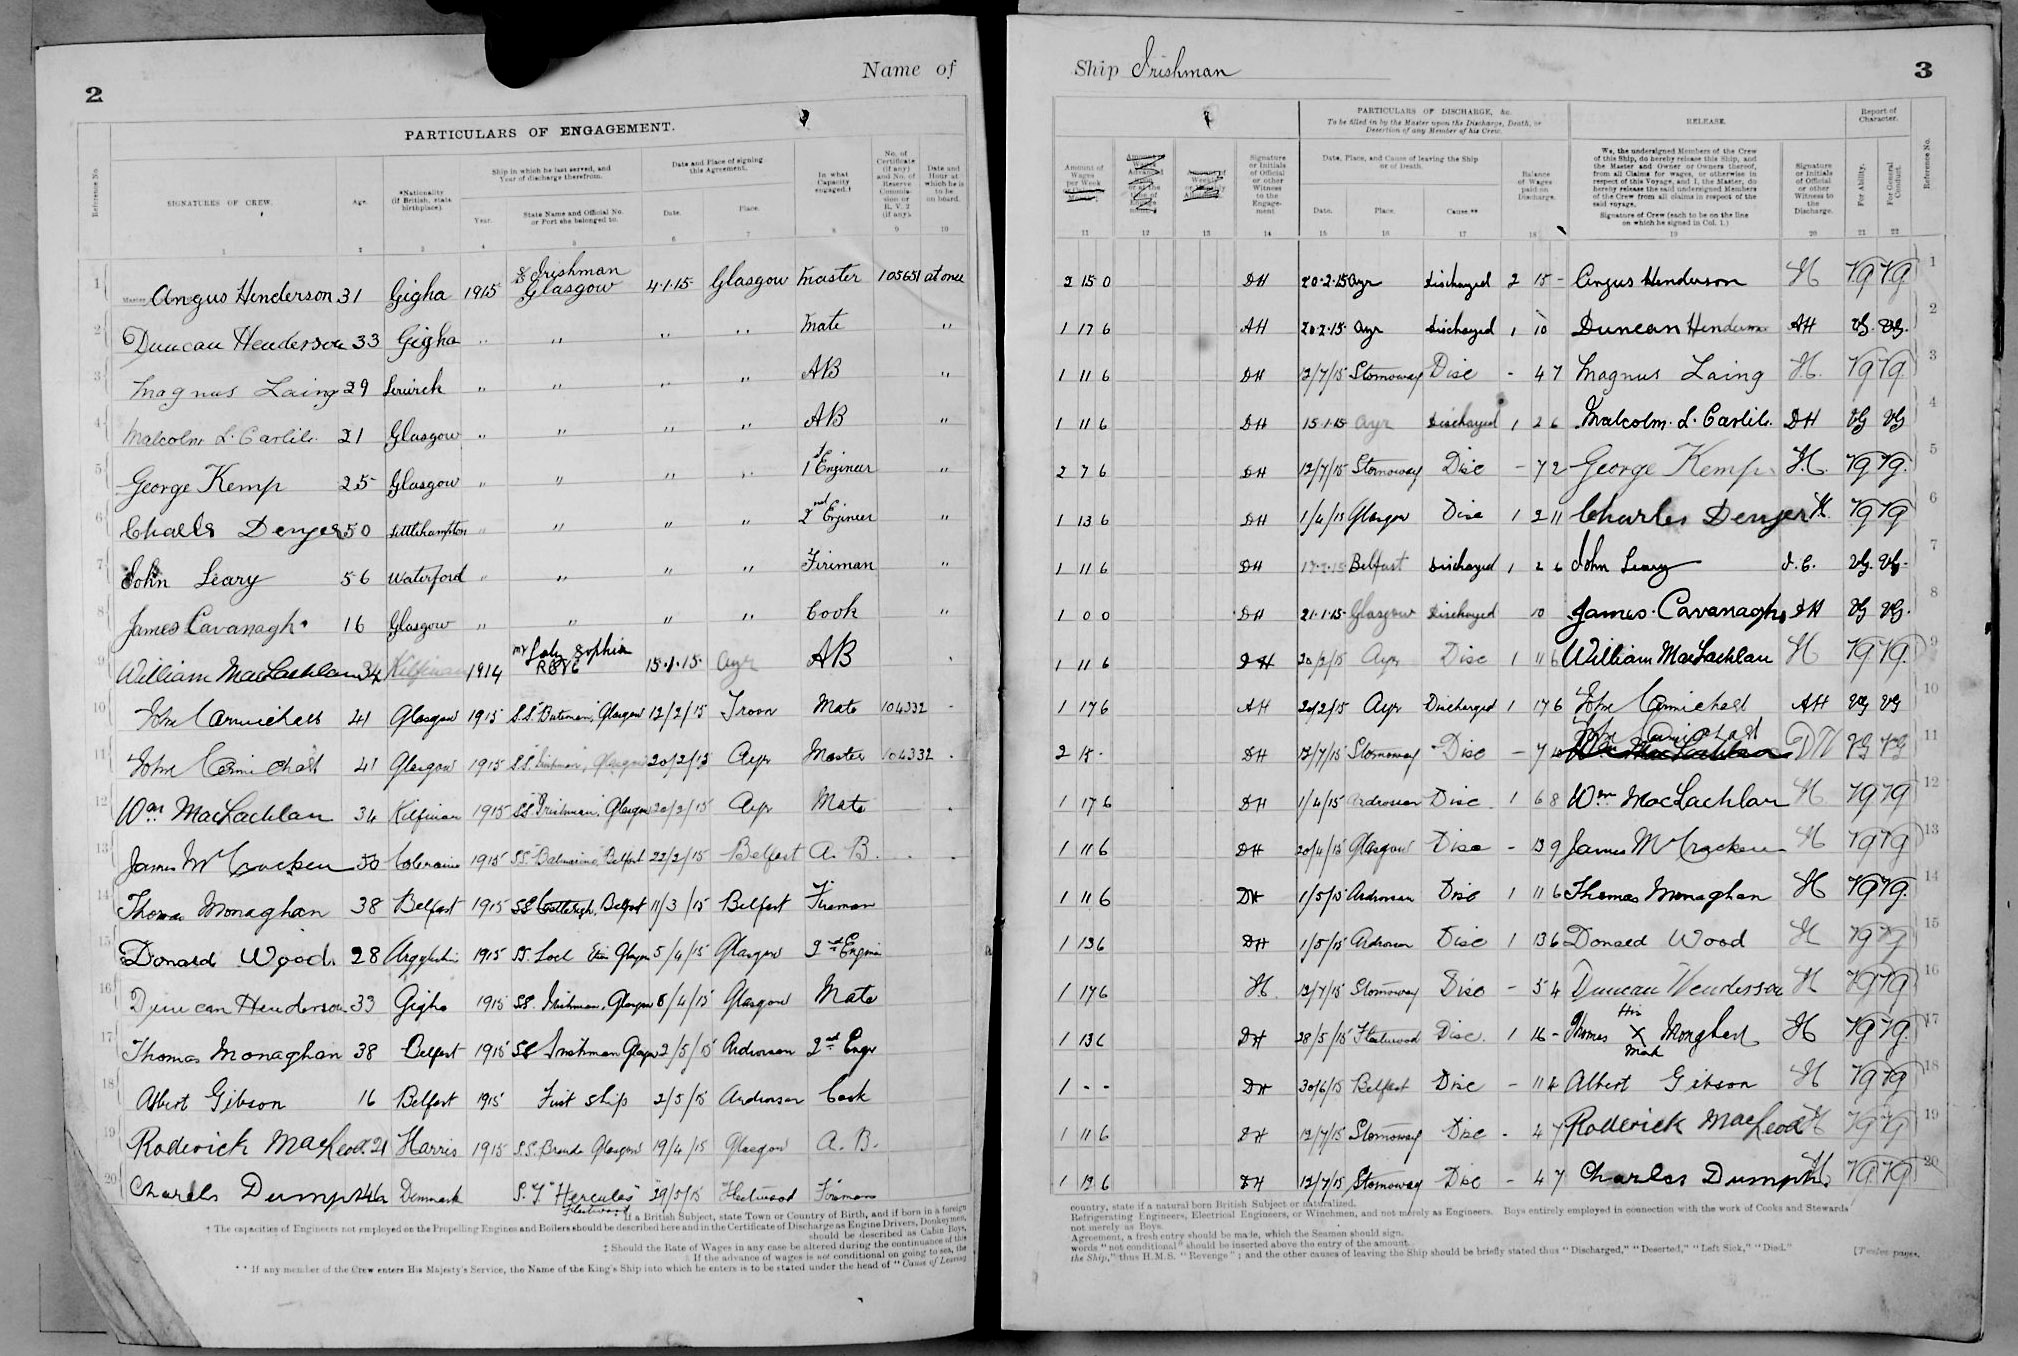 2
Name of
PARTICULARS OF ENGAGEMENT.
Reference No.
SIGNATURES OF CREW.
Age.
*Nationality (if British, state birthplace).
Ship in which he last served, and Year of discharge therefrom.
Year.
State Name and Official No. or Port she belonged to.
Date and Place of signing this Agreement.
Date.
Place.
In what Capacity engaged.†
No. of Certificate (if any) and No. of Reserve Commission or R.V. 2 (if any).
Date and Hour at which he is to be on board.
1 2 3 4 5 6 7 8 9 10
1 Master Angus Henderson 31 Gigha 1915 SS Irishman Glasgow 4.1.15 Glasgow Master 105651 at once
2 Duncan Henderson 33 Gigha " " " " Mate "
3 Magnus Laing 29 Lerwick " " " " AB "
4 Malcolm L. Carlile. 21 Glasgow " " " " AB "
5 George Kemp 25 Glasgow " " " " 1st Engineer "
6 Challs Denyer 50 Littlehampton " " " " 2nd Engineer "
7 John Leary 56 Waterford " " " " Fireman "
8 James Cavanagh 16 Glasgow " " " " Cook "
9 William MacLachlan 34 Kilfinan 1914 MY Lady Sophia 15.1.15. Ayr AB
10 John Carmichael 41 Glasgow 1915 S.S. Glasgow 12/2/15 Troon Mate 104332
11 John Carmichael 41 Glasgow 1915 S.S. "Irishman", Glasgow 20/2/15 Ayr Master 104332
12 Wm MacLachlan 34 Kilfinan 1915 SS "Irishman", Glasgow 20/2/15 Ayr Mate
13 James McCracken 50 Coleraine 1915 SS Belfast 22/2/15 Belfast A.B.
14 Thomas Monaghan 38 Belfast 1915 SS Belfast 11/3/15 Belfast Fireman
15 Donald Wood 28 Argyleshire 1915 SS. Loch Etive Glasgow 5/4/15 Glasgow 2nd Engineer
16 Duncan Henderson 33 Gigha 1915 SS. Irishman, Glasgow 8/4/15 Glasgow Mate
17 Thomas Monaghan 38 Belfast 1915 SS Irishman Glasgow 2/5/15 Ardrossan 2nd Engr
18 Albert Gibson 16 Belfast 1915 First ship 2/5/15 Ardrossan Cook
19 Roderick MacLeod. 21 Harris 1915 S.S. Glasgow 19/4/15 Glasgow A.B.
20 Charels Dumph 46 Denmark S.T "Hercules" Fleetwood 29/5/15 Fleetwood Fireman
* If a British Subject, state Town or Country of Birth, and if born in a foreign
† The capacities of Engineers not employed on the Propelling Engines and Boilers should be described here and in the Certificate of Discharge as Engine Drivers, Donkeymen,
should be described as Cabin Boys,
‡ Should the Rate of Wages in any case be altered during the continuance of this
If the advance of wages is not conditional on going to sea, the
** If any member of the Crew enters His Majesty's Service, the Name of the King's Ship into which he enters is to be stated under the head of "Cause of Leaving
Ship Irishman
3
Amount of Wages per Week
Signature or Initials of Official or other Witness to the Engagement
PARTICULARS OF DISCHARGE, &c.
To be filled in by the Master upon the Discharge, Death, or Desertion of any Member of his Crew.
Date, Place, and Cause of leaving the Ship or of Death.
Date.
Place.
Cause.**
Balance of Wages paid on Discharge.
RELEASE.
We, the undersigned Members of the Crew of this Ship, do hereby release this Ship, and the Master and Owner or Owners thereof, from all Claims for wages, or otherwise in respect of this Voyage, and I, the Master, do hereby release the said undersigned Members of the Crew from all claims in respect of the said voyage.
Signature of Crew (each to be on the line on which he signed in Col. 1.)
Signature or Initials of Official or other Witness to the Discharge.
Report of Character.
For Ability.
For General Conduct.
Reference No.
11 12 13 14 15 16 17 18 19 20 21 22
2 15 0 DH 20.2.15 Ayr Discharged 2 15 - Angus Henderson H VG VG 1
1 17 6 AH 20.2.15 Ayr Discharged 1 10 Duncan Henderson AH VG VG. 2
1 11 6 DH 12/7/15 Stornoway Disc - 4 7 Magnus Laing H. VG VG 3
1 11 6 DH 15.1.15 Ayr Discharged 1 2 6 Malcolm. L. Carlile. DH VG VG 4
2 7 6 DH 12/7/15 Stornoway Disc - 7 2 George Kemp H. VG VG. 5
1 13 6 DH 1/4/15 Glasgow Disc 1 2 11 Charles Denyer H. VG VG 6
1 11 6 DH Belfast Discharged 1 2 6 John Leary J.C. VG. VG. 7
1 0 0 DH 21.1.15 Glasgow Discharged 10 James Cavanagh DH VG VG. 8
1 11 6 DH 20/2/15 Ayr Disc 1 11 6 William MacLachlan H VG VG. 9
1 17 6 AH 20/2/15 Ayr Discharged 1 17 6 John Carmichael AH VG VG 10
2 15 - DH 12/7/15 Stornoway Disc - 7 John Carmichael Wm MacLachlan DH VG VG 11
1 17 6 DH 1/4/15 Ardrossan Disc. 1 6 8 Wm MacLachlan H VG VG 12
1 11 6 DH 20/4/15 Glasgow Disc - 13 9 James McCracken H VG VG 13
1 11 6 DH 1/5/15 Ardrossan Disc 1 11 6 Thomas Monaghan H VG VG. 14
1 13 6 DH 1/5/15 Ardrossan Disc 1 13 6 Donald Wood H VG VG 15
1 17 6 H. 12/7/15 Stornoway Disc - 5 4 Duncan Henderson H VG VG 16
1 13 6 DH 28/5/15 Fleetwood Disc. 1 16 - Thomas His X Mark Monghan H VG VG. 17
1 - - DH 30/6/15 Belfast Disc - 11 4 Albert Gibson H VG VG 18
1 11 6 DH 12/7/15 Stornoway Disc - 4 7 Roderick MacLeod H VG VG 19
1 12 6 DH 12/7/15 Stornoway Disc - 4 7 Charles Dumph H. VG VG 20
country, state if a natural born British Subject or naturalized.
Refrigerating Engineers, Electrical Engineers, or Winchmen, and not merely as Engineers. Boys entirely employed in connection with the work of Cooks and Stewards
not merely as Boys.
Agreement, a fresh entry should be made, which the Seamen should sign.
words "not conditional" should be inserted above the entry of the amount.
the Ship," thus H.M.S. "Revenge"; and the other causes of leaving the Ship should be briefly stated thus "Discharged," "Deserted," "Left Sick," "Died."
[Twelve pages.